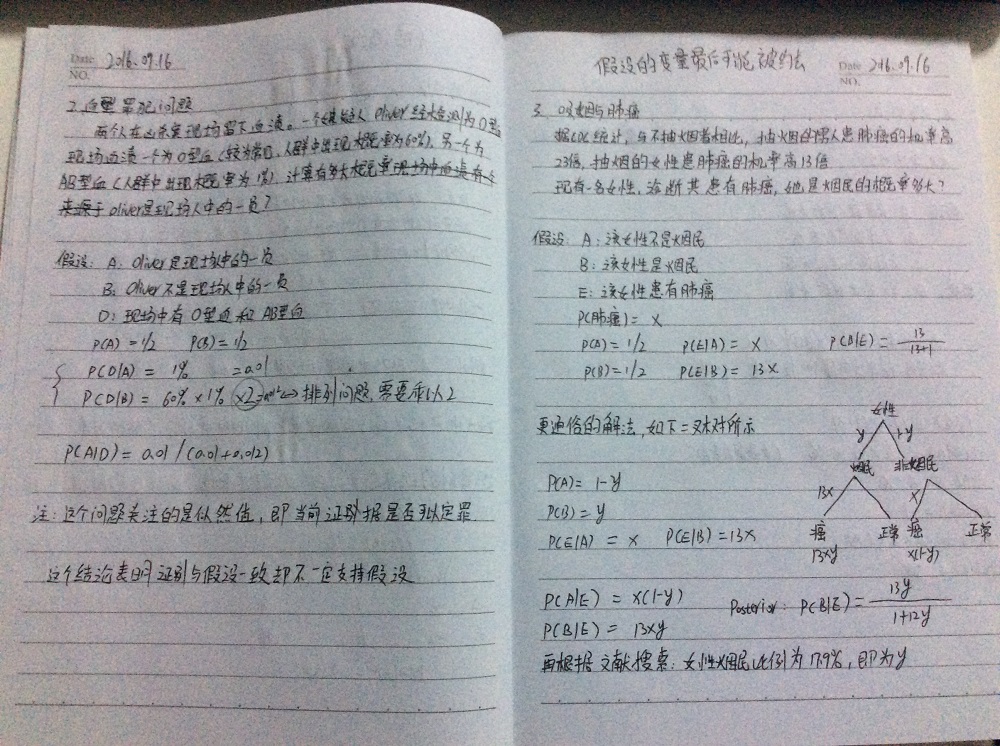 Date 2016.09.16
NO.
2. 血型罪犯问题
两个人在凶杀案现场留下血渍。一个嫌疑人 Oliver 经检测为O型血
现场血渍一个为O型血(较为常见,人群中出现概率为60%),另一个为
AB型血(人群中出现概率为1%),计算有多大概率现场中血渍有
来源于 oliver是现场人中的一员?
假设: A: Oliver是现场人中的一员
B: Oliver不是现场人中的一员
D: 现场中有O型血和AB型血
P(A) = 1/2 P(B) = 1/2
P(D|A) = 1% = 0.01
P(D|B) = 60% × 1% ×2 =0.012 排列问题,需要乘以2
P(A|D) = 0.01 / (0.01+0.012)
注: 这个问题关注的是似然值,即当前证据是否可以定罪
这个结论表明证据与假设一致却不一定支持假设
假设的变量最后可能被约去
Date 2016.09.16
NO.
3. 吸烟与肺癌
据CDC统计,与不抽烟者相比,抽烟的男人患肺癌的机率高
23倍,抽烟的女性患肺癌的机率高13倍
现有一名女性,诊断其患有肺癌,她是烟民的概率多大?
假设: A: 该女性不是烟民
B: 该女性是烟民
E: 该女性患有肺癌
P(肺癌) = x
P(A) = 1/2 P(E|A) = x P(B|E) = 13/(13+1)
P(B) = 1/2 P(E|B) = 13x
更通俗的解法,如下二叉树所示
女性
y 1-y
烟民 非烟民
13x x
癌 正常 癌 正常
13xy x(1-y)
P(A) = 1-y
P(B) = y
P(E|A) = x P(E|B) = 13x
P(A|E) = x(1-y)
P(B|E) = 13xy
Posterior: P(B|E) = 13y/(1+12y)
再根据文献搜索: 女性烟民比例为17.9%,即为y